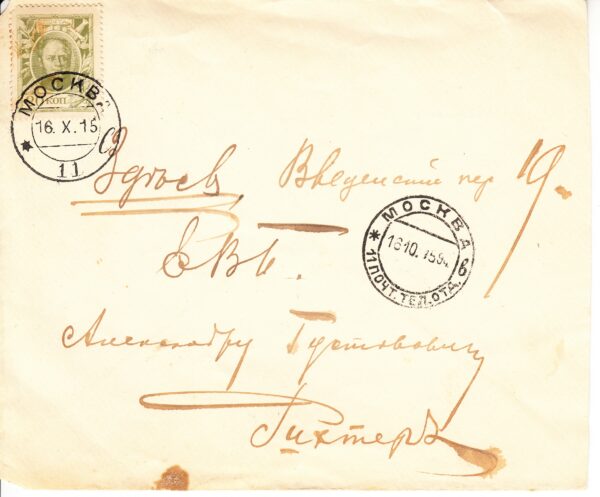 КОП
МОСКВА
16. X. 15
11
Здѣсь, Введенскій пер 19.
ЕВБ.
МОСКВА
16.10.15
11 ПОЧТ. ТЕЛ. ОТД.
Александру Густавовичу
Рихтеръ